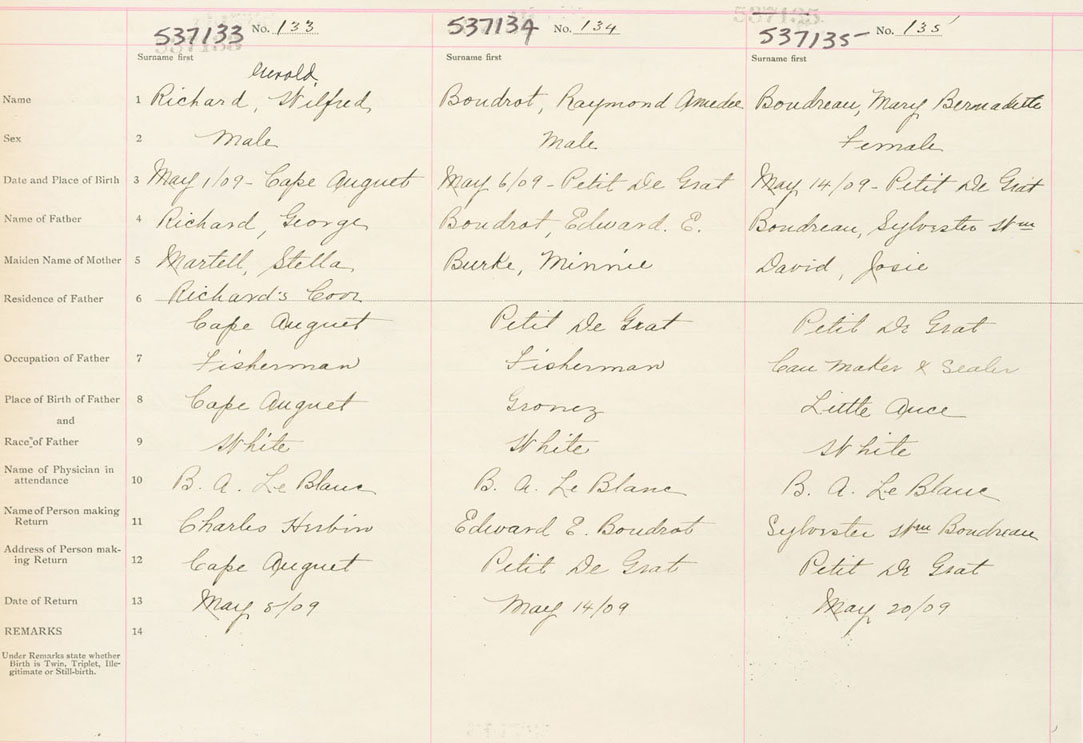 537133 No. 133 537134 No. 134 537135 No. 135
Surname first Surname first Surname first
Gerold
Name 1 Richard, Wilfred Boudrot, Raymond Amedee Boudreau, Mary Bernadette
Sex 2 Male Male Female
Date and Place of Birth 3 May 1/09 - Cape Auguet May 6/09 - Petit De Grat May 14/09 - Petit De Grat
Name of Father 4 Richard, George Boudrot, Edward. E. Boudreau, Sylvester Wm
Maiden Name of Mother 5 Martell, Stella Burke, Minnie David, Josie
Residence of Father 6 Richard's
Cape Auguet Petit De Grat Petit De Grat
Occupation of Father 7 Fisherman Fisherman Can Maker & Sealer
Place of Birth of Father 8 Cape Auguet Little Ance
and
Race of Father 9 White White White
Name of Physician in
attendance 10 B. A. Le Blanc B. A. Le Blanc B. A. Le Blanc
Name of Person making
Return 11 Charles Herbin Edward E. Boudrot Sylvester Wm Boudreau
Address of Person mak-
ing Return 12 Cape Auguet Petit De Grat Petit De Grat
Date of Return 13 May 8/09 May 14/09 May 20/09
REMARKS 14
Under Remarks state whether
Birth is Twin, Triplet, Ille-
gitimate or Still-birth.